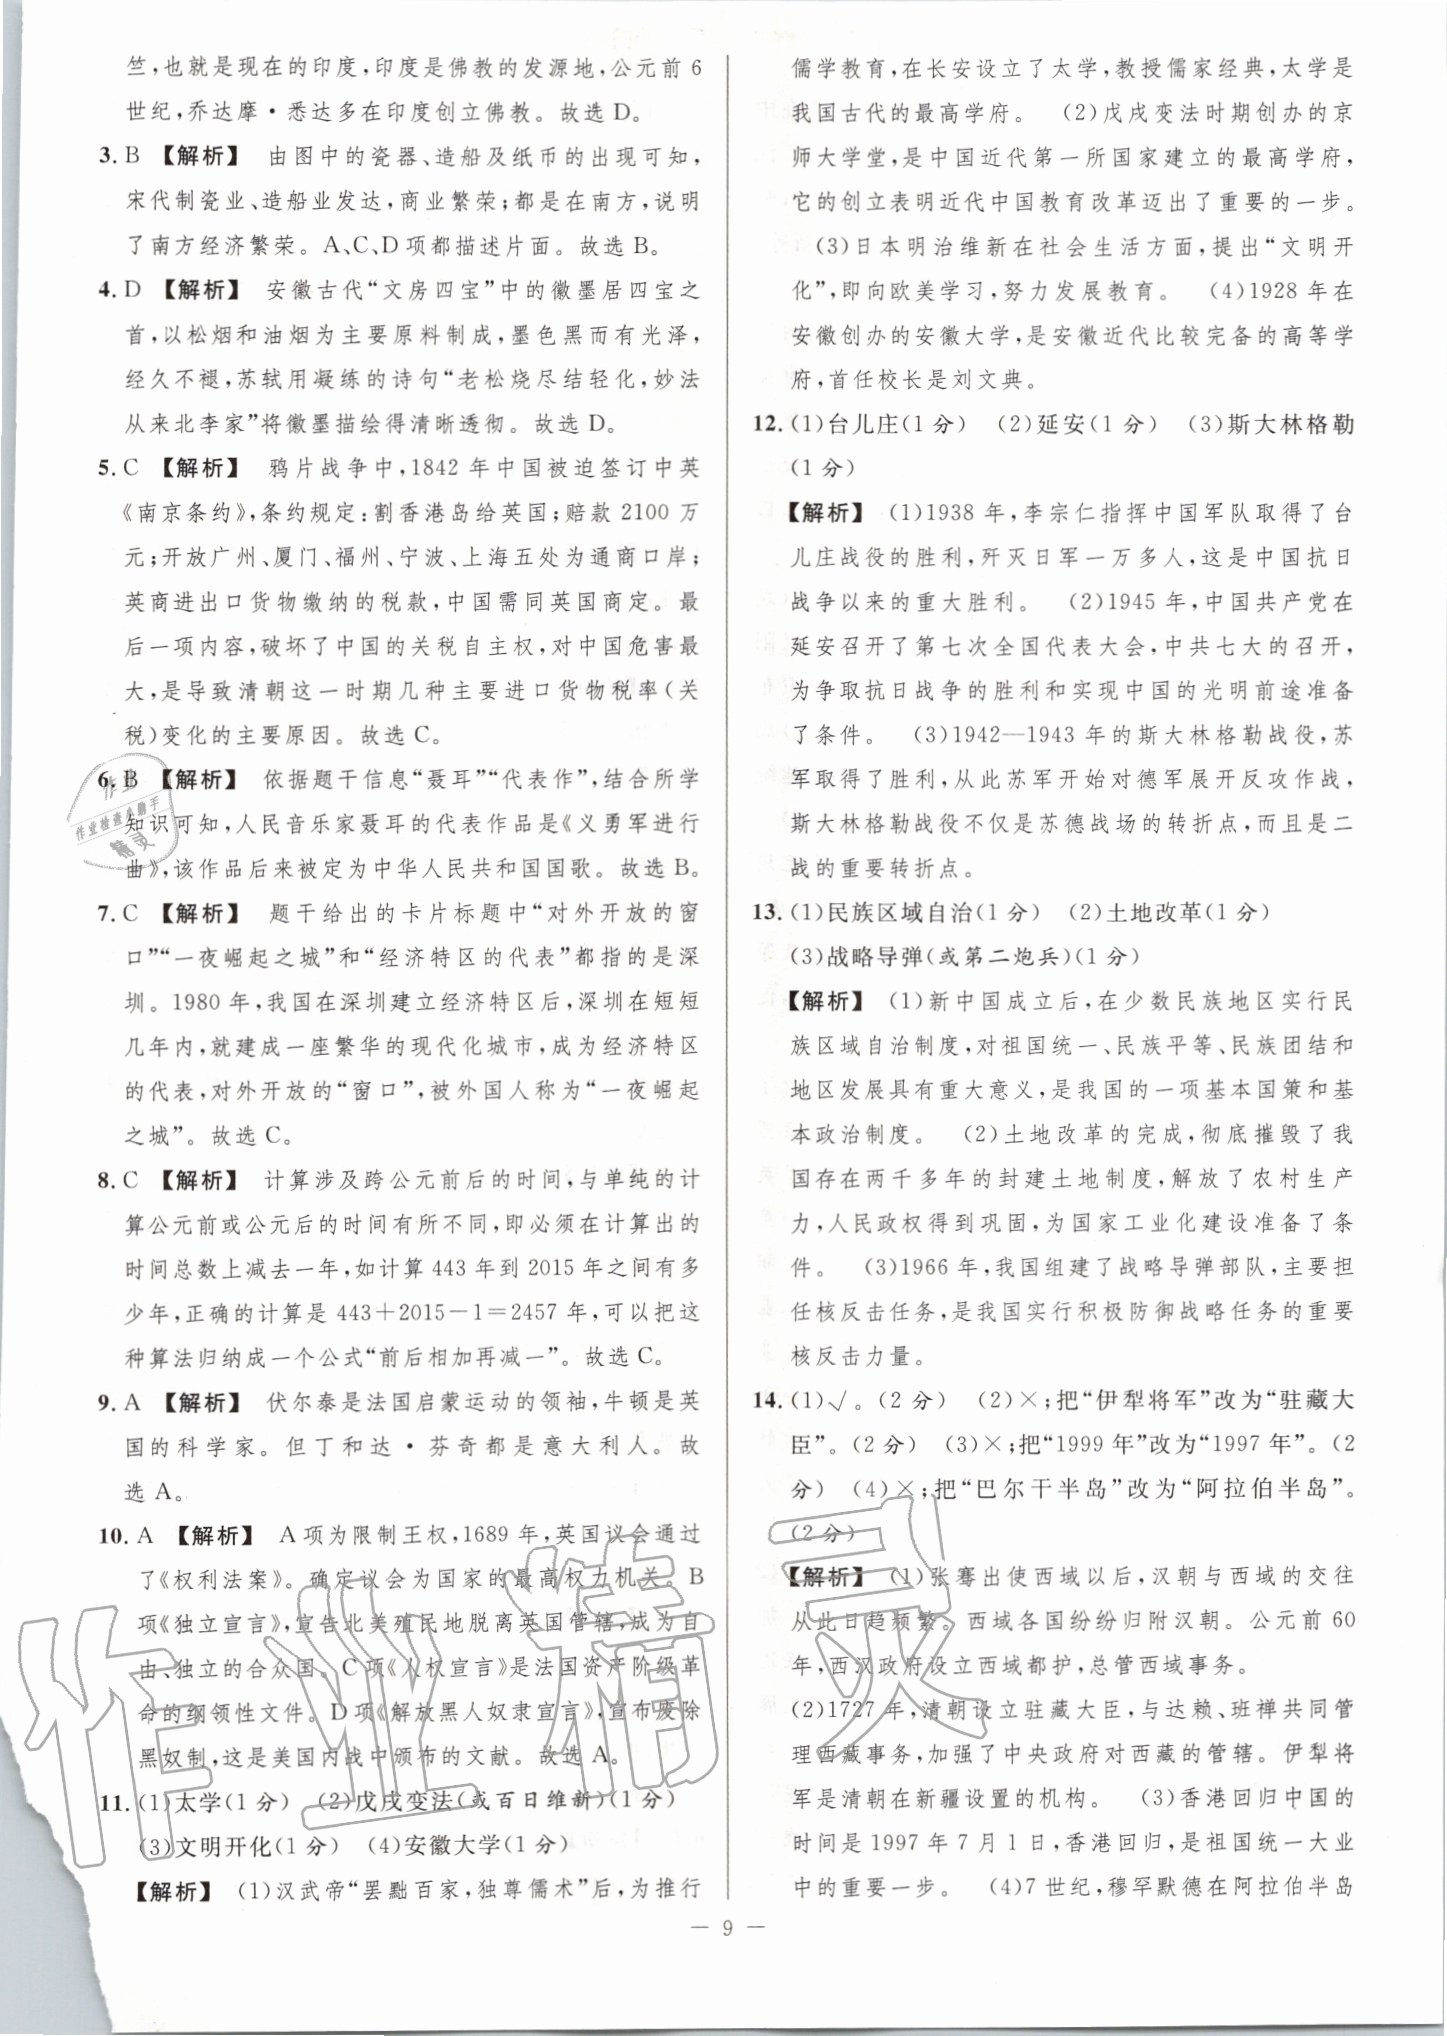 竺,也就是现在的印度,印度是佛教的发源地,公元前 6
世纪,乔达摩·悉达多在印度创立佛教。故选 D。
3. B 【解析】 由图中的瓷器、造船及纸币的出现可知,
宋代制瓷业、造船业发达,商业繁荣;都是在南方,说明
了南方经济繁荣。A、C、D 项都描述片面。故选 B。
4. D 【解析】 安徽古代“文房四宝”中的徽墨居四宝之
首,以松烟和油烟为主要原料制成,墨色黑而有光泽,
经久不褪,苏轼用凝练的诗句“老松烧尽结轻化,妙法
从来北李家”将徽墨描绘得清晰透彻。故选 D。
5. C 【解析】 鸦片战争中,1842 年中国被迫签订中英
《南京条约》,条约规定:割香港岛给英国;赔款 2100 万
元;开放广州、厦门、福州、宁波、上海五处为通商口岸;
英商进出口货物缴纳的税款,中国需同英国商定。最
后一项内容,破坏了中国的关税自主权,对中国危害最
大,是导致清朝这一时期几种主要进口货物税率(关
税)变化的主要原因。故选 C。
6. B 【解析】 依据题干信息“聂耳”“代表作”,结合所学
知识可知,人民音乐家聂耳的代表作品是《义勇军进行
曲》,该作品后来被定为中华人民共和国国歌。故选 B。
7. C 【解析】 题干给出的卡片标题中“对外开放的窗
口”“一夜崛起之城”和“经济特区的代表”都指的是深
圳。1980 年,我国在深圳建立经济特区后,深圳在短短
几年内,就建成一座繁华的现代化城市,成为经济特区
的代表,对外开放的“窗口”,被外国人称为“一夜崛起
之城”。故选 C。
8. C 【解析】 计算涉及跨公元前后的时间,与单纯的计
算公元前或公元后的时间有所不同,即必须在计算出的
时间总数上减去一年,如计算 443 年到 2015 年之间有多
少年,正确的计算是 443+2015-1=2457 年,可以把这
种算法归纳成一个公式“前后相加再减一”。故选 C。
9. A 【解析】 伏尔泰是法国启蒙运动的领袖,牛顿是英
国的科学家。但丁和达·芬奇都是意大利人。故
选 A。
10. A 【解析】 A 项为限制王权,1689 年,英国议会通过
了《权利法案》。确定议会为国家的最高权力机关。B
项《独立宣言》,宣告北美殖民地脱离英国管辖,成为自
由、独立的合众国。C 项《人权宣言》是法国资产阶级革
命的纲领性文件。D 项《解放黑人奴隶宣言》,宣布废除
黑奴制,这是美国内战中颁布的文献。故选 A。
11. (1)太学(1 分) (2)戊戌变法(或百日维新)(1 分)
(3)文明开化(1 分) (4)安徽大学(1 分)
【解析】 (1)汉武帝“罢黜百家,独尊儒术”后,为推行
儒学教育,在长安设立了太学,教授儒家经典,太学是
我国古代的最高学府。 (2)戊戌变法时期创办的京
师大学堂,是中国近代第一所国家建立的最高学府,
它的创立表明近代中国教育改革迈出了重要的一步。
(3)日本明治维新在社会生活方面,提出“文明开
化”,即向欧美学习,努力发展教育。 (4)1928 年在
安徽创办的安徽大学,是安徽近代比较完备的高等学
府,首任校长是刘文典。
12. (1)台儿庄(1 分) (2)延安(1 分) (3)斯大林格勒
(1 分)
【解析】 (1)1938 年,李宗仁指挥中国军队取得了台
儿庄战役的胜利,歼灭日军一万多人,这是中国抗日
战争以来的重大胜利。 (2)1945 年,中国共产党在
延安召开了第七次全国代表大会,中共七大的召开,
为争取抗日战争的胜利和实现中国的光明前途准备
了条件。 (3)1942—1943 年的斯大林格勒战役,苏
军取得了胜利,从此苏军开始对德军展开反攻作战,
斯大林格勒战役不仅是苏德战场的转折点,而且是二
战的重要转折点。
13. (1)民族区域自治(1 分) (2)土地改革(1 分)
(3)战略导弹(或第二炮兵)(1 分)
【解析】 (1)新中国成立后,在少数民族地区实行民
族区域自治制度,对祖国统一、民族平等、民族团结和
地区发展具有重大意义,是我国的一项基本国策和基
本政治制度。 (2)土地改革的完成,彻底摧毁了我
国存在两千多年的封建土地制度,解放了农村生产
力,人民政权得到巩固,为国家工业化建设准备了条
件。 (3)1966 年,我国组建了战略导弹部队,主要担
任核反击任务,是我国实行积极防御战略任务的重要
核反击力量。
14. (1)√。(2 分) (2)×;把“伊犁将军”改为“驻藏大
臣”。(2 分) (3)×;把“1999 年”改为“1997 年”。(2
分) (4)×;把“巴尔干半岛”改为“阿拉伯半岛”。
(2 分)
【解析】 (1)张骞出使西域以后,汉朝与西域的交往
从此日趋频繁。西域各国纷纷归附汉朝。公元前 60
年,西汉政府设立西域都护,总管西域事务。
(2)1727 年,清朝设立驻藏大臣,与达赖、班禅共同管
理西藏事务,加强了中央政府对西藏的管辖。伊犁将
军是清朝在新疆设置的机构。 (3)香港回归中国的
时间是 1997 年 7 月 1 日,香港回归,是祖国统一大业
中的重要一步。 (4)7 世纪,穆罕默德在阿拉伯半岛
— 9 —
作业
作业检查小助手
精灵
作业精灵